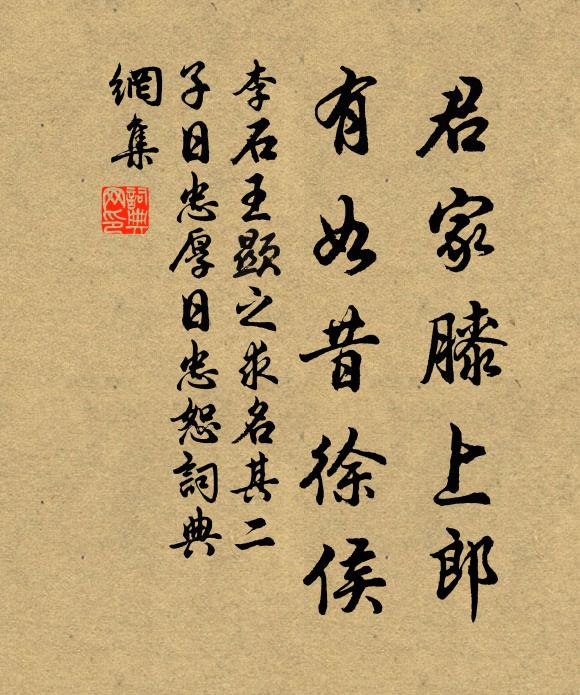 君家膝上郎
有如昔徐侯
李石王顕之求名其二
子日忠厚日忠恕詞典
網集
詞典网印